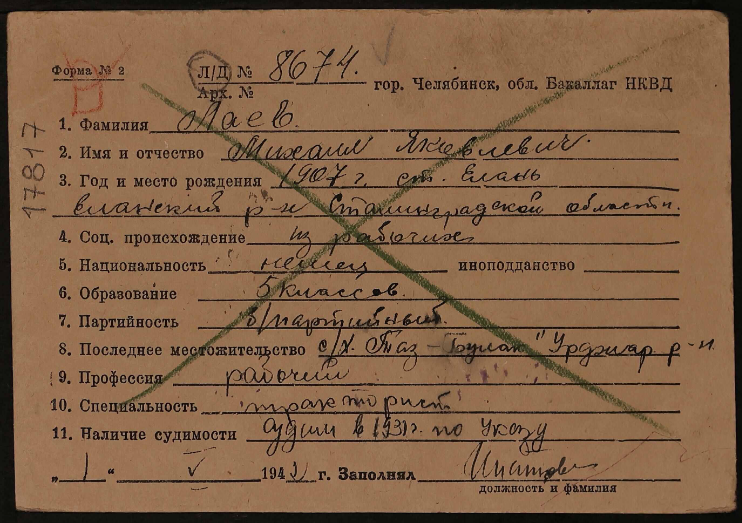 Форма № 2
Л/Д № 8674.
Арх. №
гор. Челябинск, обл. Бакаллаг НКВД
17817
1. Фамилия Лаев.
2. Имя и отчество Михаил Яковлевич.
3. Год и место рождения 1907 г. ст. Елань
Еланский р-н Сталинградской области.
4. Соц. происхождение из рабочих
5. Национальность немец иноподданство
6. Образование 5 классов.
7. Партийность б/партийный.
8. Последнее местожительство с/х. Таз-Булак" Урджар р-н
9. Профессия рабочий
10. Специальность тракторист
11. Наличие судимости судим в 1931г. по Указу
„1“ V 194 г. Заполнял
должность и фамилия